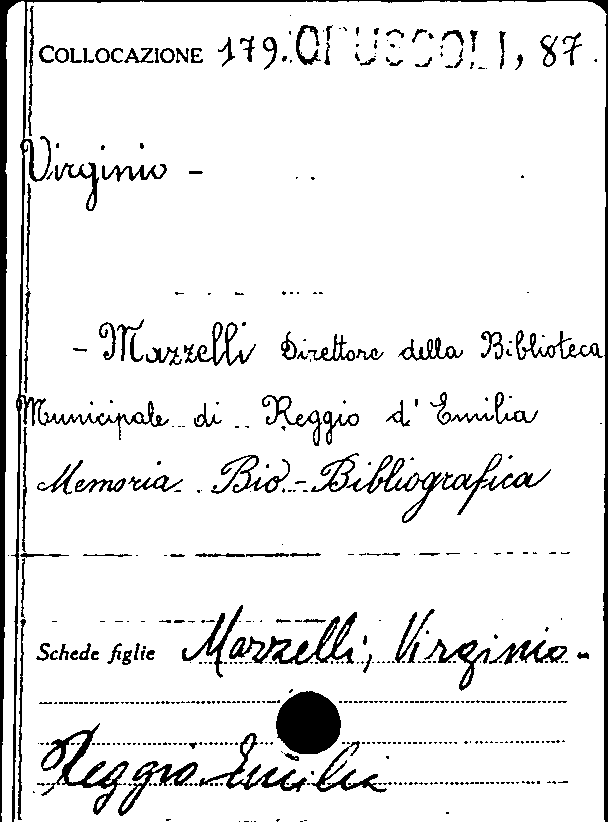 COLLOCAZIONE 179.OPUSCOLI, 87.
Virginio -
- Mazzelli Direttore della Biblioteca
Municipale di Reggio d'Emilia
Memoria Bio-Bibliografica
Schede figlie Mazzelli, Virginio-
Reggio Emilia